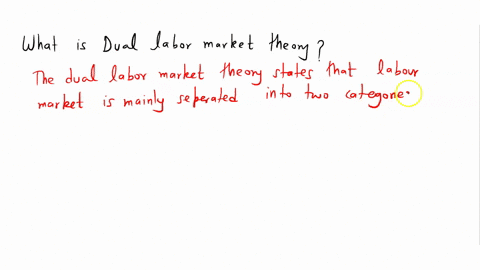 What is Dual labor market theory?
The dual labor market theory states that labour
market is mainly seperated into two categorie